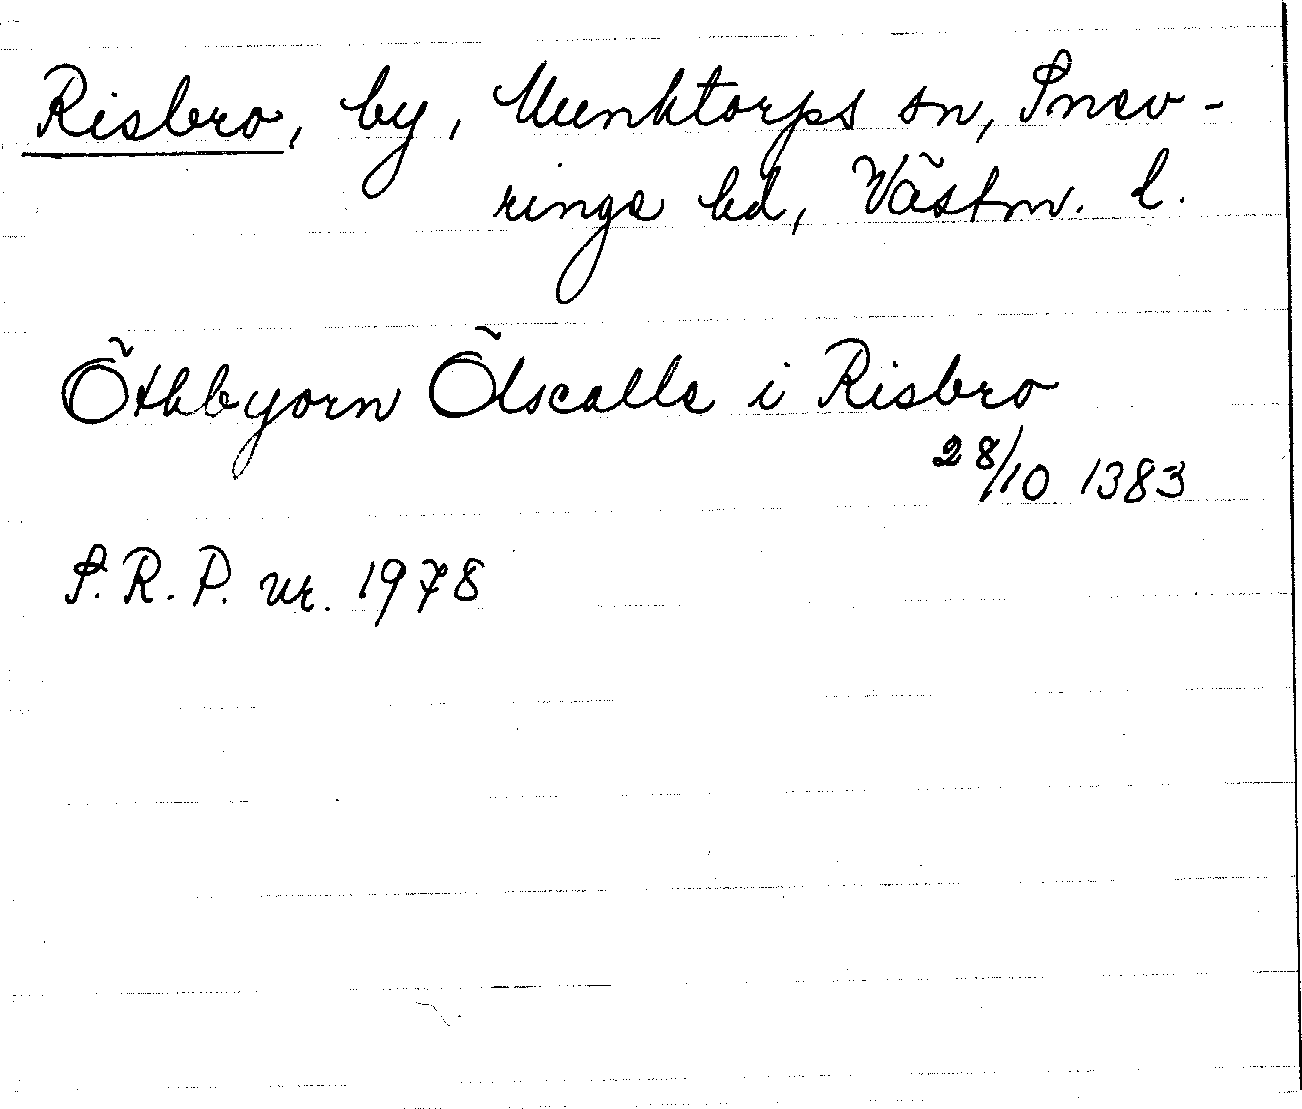 Risbro, by, Munktorps sn, Snev-
ringe hd, Västm. l.
Öthbyorn Ölscalle i Risbro
28/10 1383
S.R.P. nr. 1978